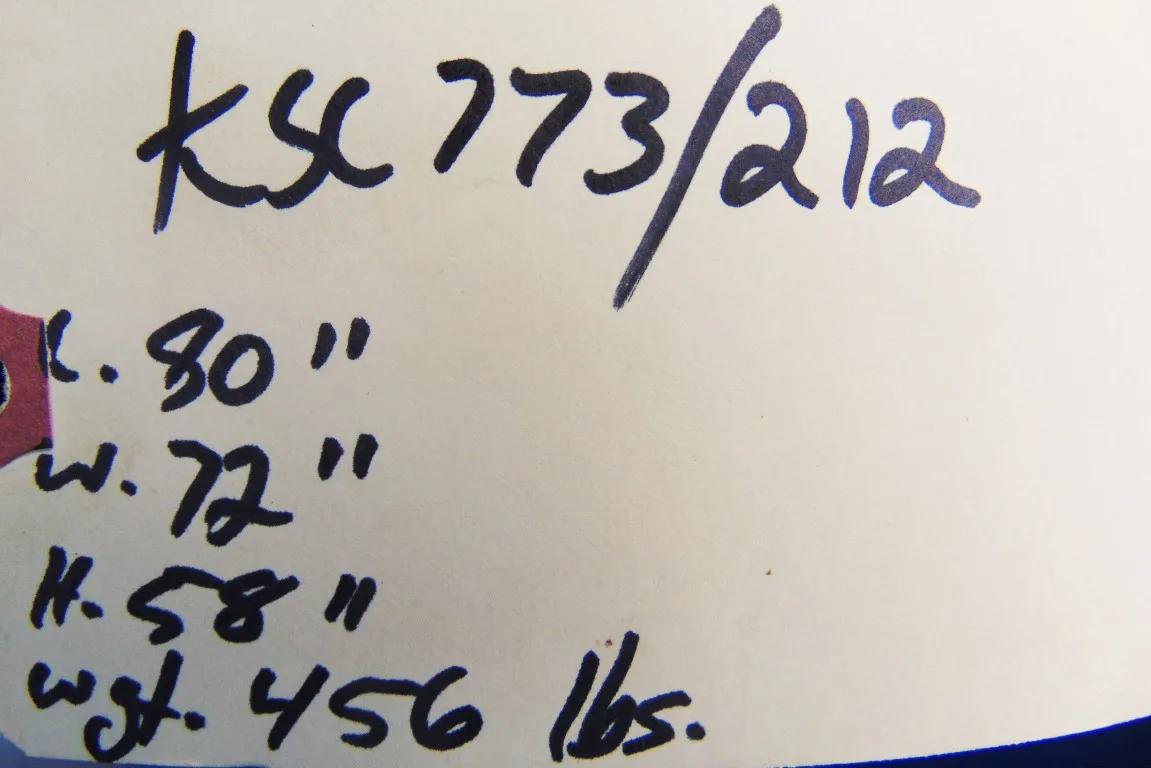 KSC 773/212
L. 80"
W. 72"
H. 58"
wgt. 456 lbs.